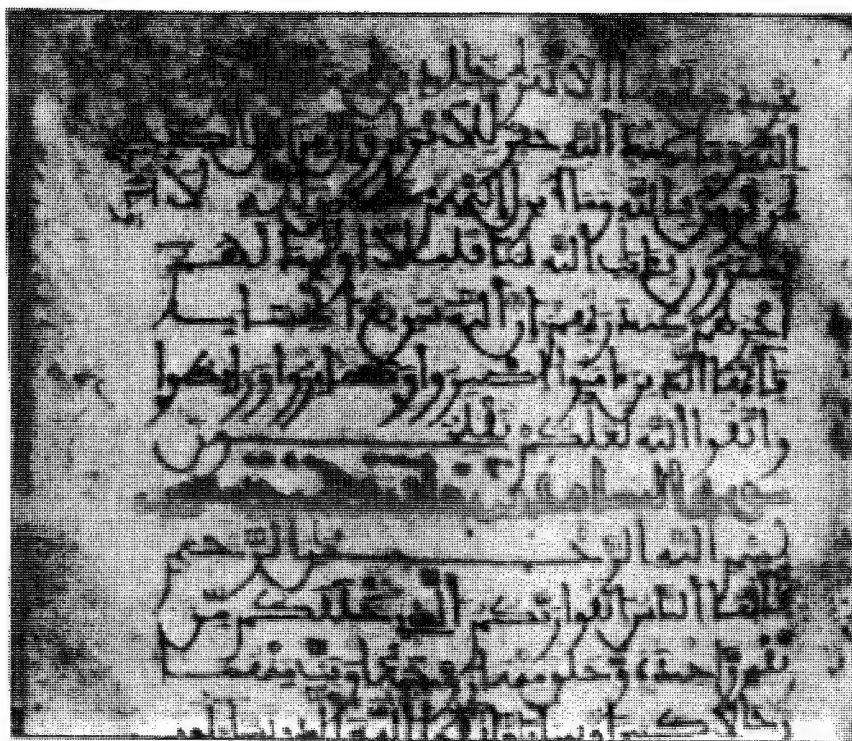 الانهر خلدين
الله وما عند الله خير للابرار وان من اهل الكتب
لمن يومن بالله وما انزل اليكم
يشترون بايت الله ثمنا قليلا اولئك لهم
اجرهم عند ربهم ان الله سريع الحساب
يايها الذين امنوا اصبروا وصابروا ورابطوا
واتقوا الله لعلكم تفلحون
بسم الله الرحمن الرحيم
يايها الناس اتقوا ربكم الذي خلقكم من
نفس وحدة وخلق منها زوجها وبث منهما
رجالا كثيرا ونسا واتقوا الله الذي تسالون